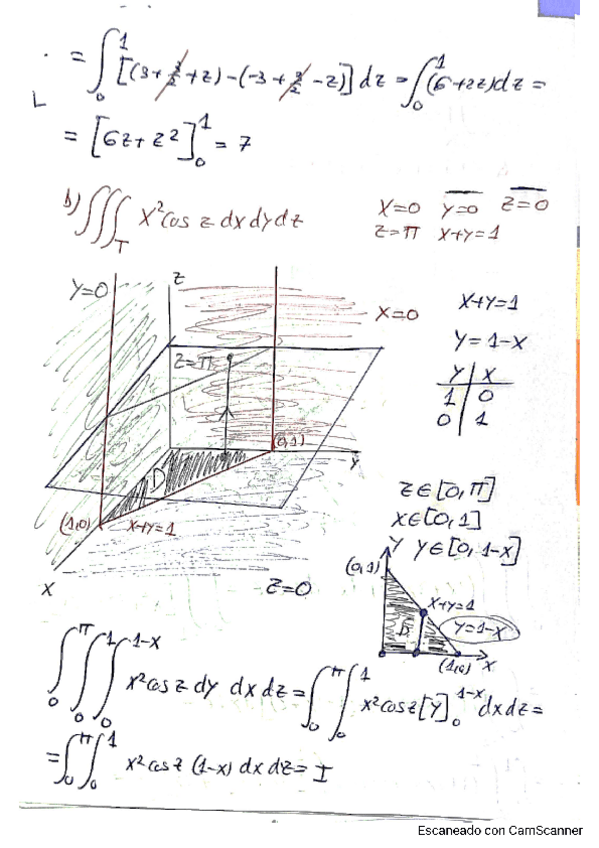 = ∫₀¹ [(3 + 3/2 + z) - (-3 + 3/2 - z)] dz = ∫₀¹ (6 + 2z) dz =
= [6z + z²]₀¹ = 7
b) ∭_T x² cos z dx dy dz
X=0 Y=0 Z=0
Z=π X+Y=1
Y=0
Z
X=0
X+Y=1
Y = 1-X
Y X
1 0
0 1
Z=π
(0,1)
Y
D
(1,0)
X+Y=1
X
Z=0
Z∈[0,π]
X∈[0,1]
Y∈[0,1-X]
Y
(0,1)
X+Y=1
Y=1-X
D
(1,0) X
∫₀^π ∫₀¹ ∫₀^(1-x) x² cos z dy dx dz = ∫₀^π ∫₀¹ x² cos z [y]₀^(1-x) dx dz =
= ∫₀^π ∫₀¹ x² cos z (1-x) dx dz = I
Escaneado con CamScanner